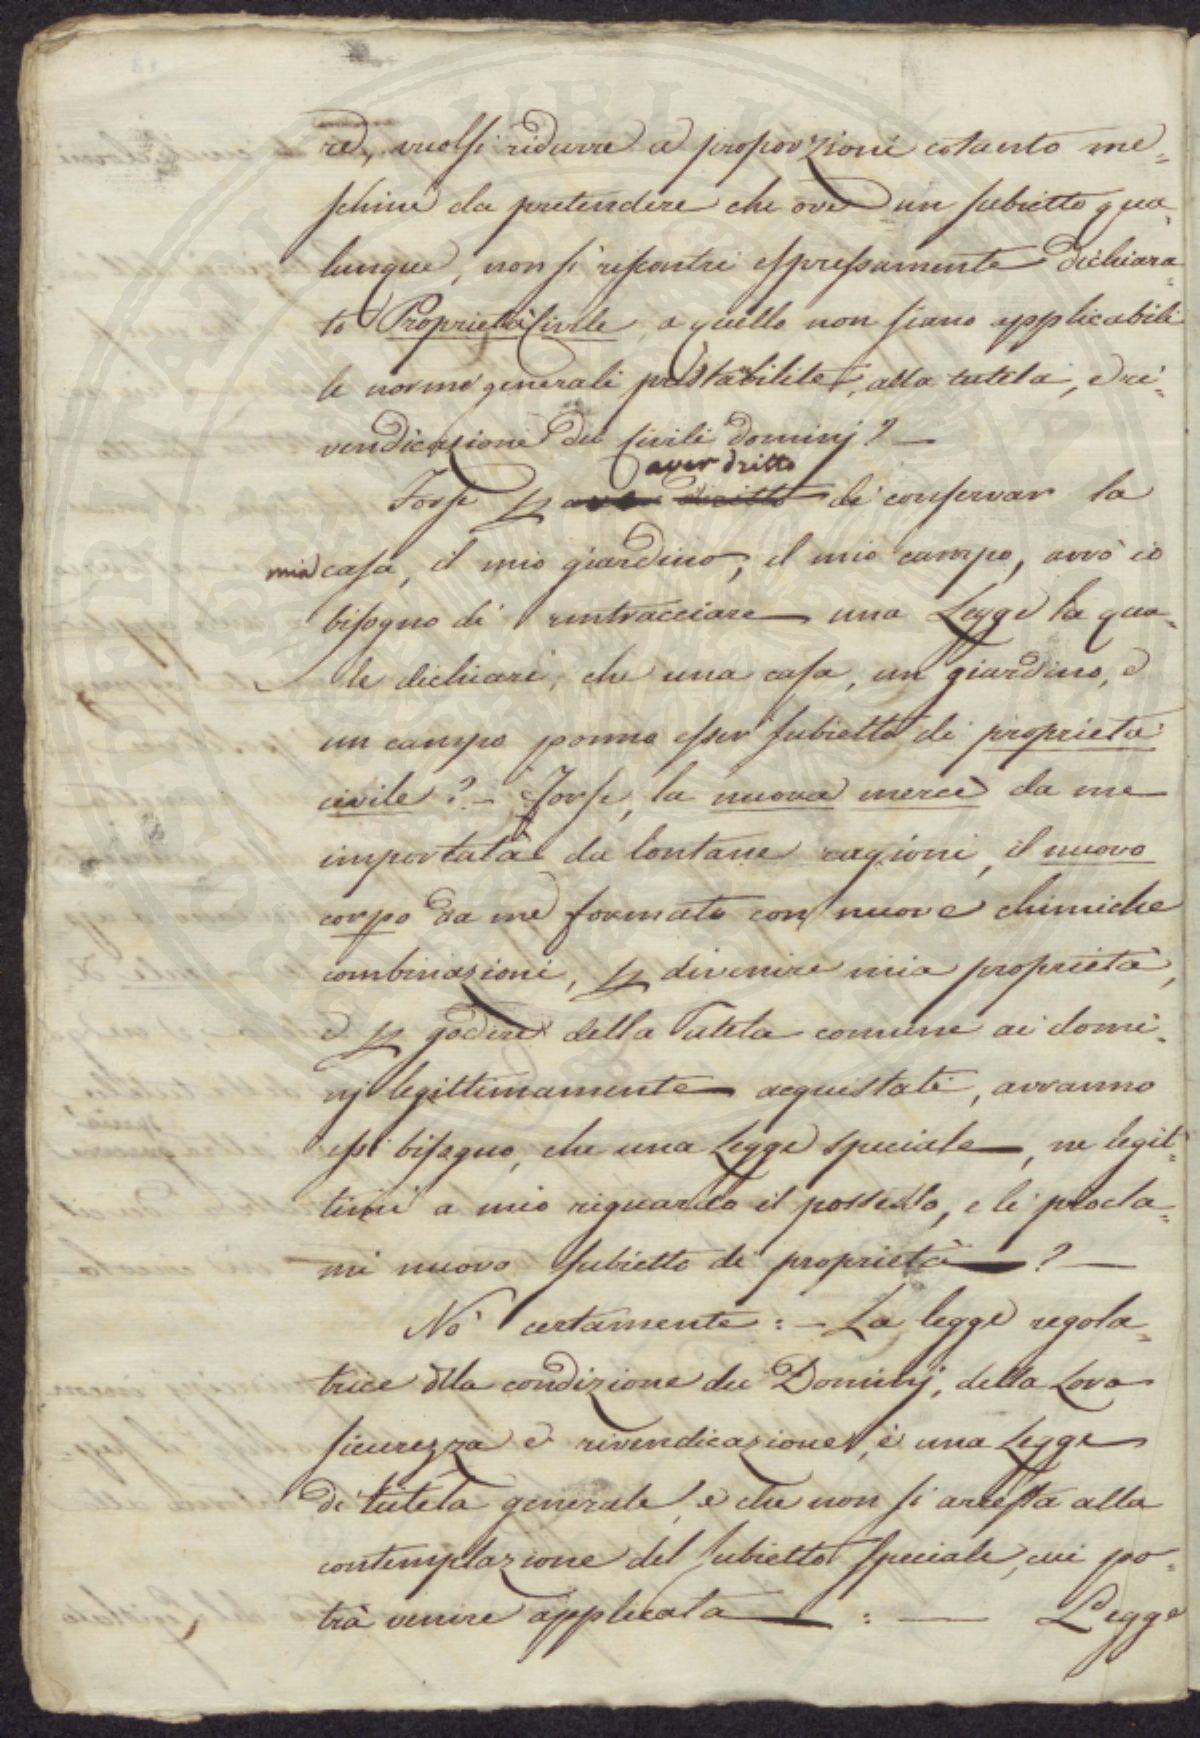 re, vuolsi ridurre a proporzioni cotanto me=
schine da pretendere che ove un subietto qua=
lunque, non si riscontri espressamente dichiara=
to Proprietà Civile, a quello non siano applicabili
le norme generali prestabilite, alla tutela, e ri=
vendicazione dei Civili dominj? —
aver dritto
Forse p di conservar la
mia casa, il mio giardino, il mio campo, avrò io
bisogno di rintracciare una Legge la qua=
le dichiari, che una casa, un giardino, e
un campo ponno esser subietto di proprietà
civile? — Forse, la nuova merce da me
importata da lontane ragioni, il nuovo
corpo da me formato con nuove chimiche
combinazioni, p divenire mia proprietà,
e p godere della Tutela comune ai domi=
nj legittimamente acquistati, avranno
essi bisogno, che una Legge speciale, ne legit=
timi a mio riguardo il possesso, e li procla=
mi nuovo subietto di proprietà — ? —
Nò certamente: — La legge regola=
trice della condizione dei Dominj, della Loro
sicurezza e rivendicazione, è una Legge
di tutela generale, e che non si arresta alla
contemplazione del subietto speciale, cui po=
trà venire applicata — : — Legge